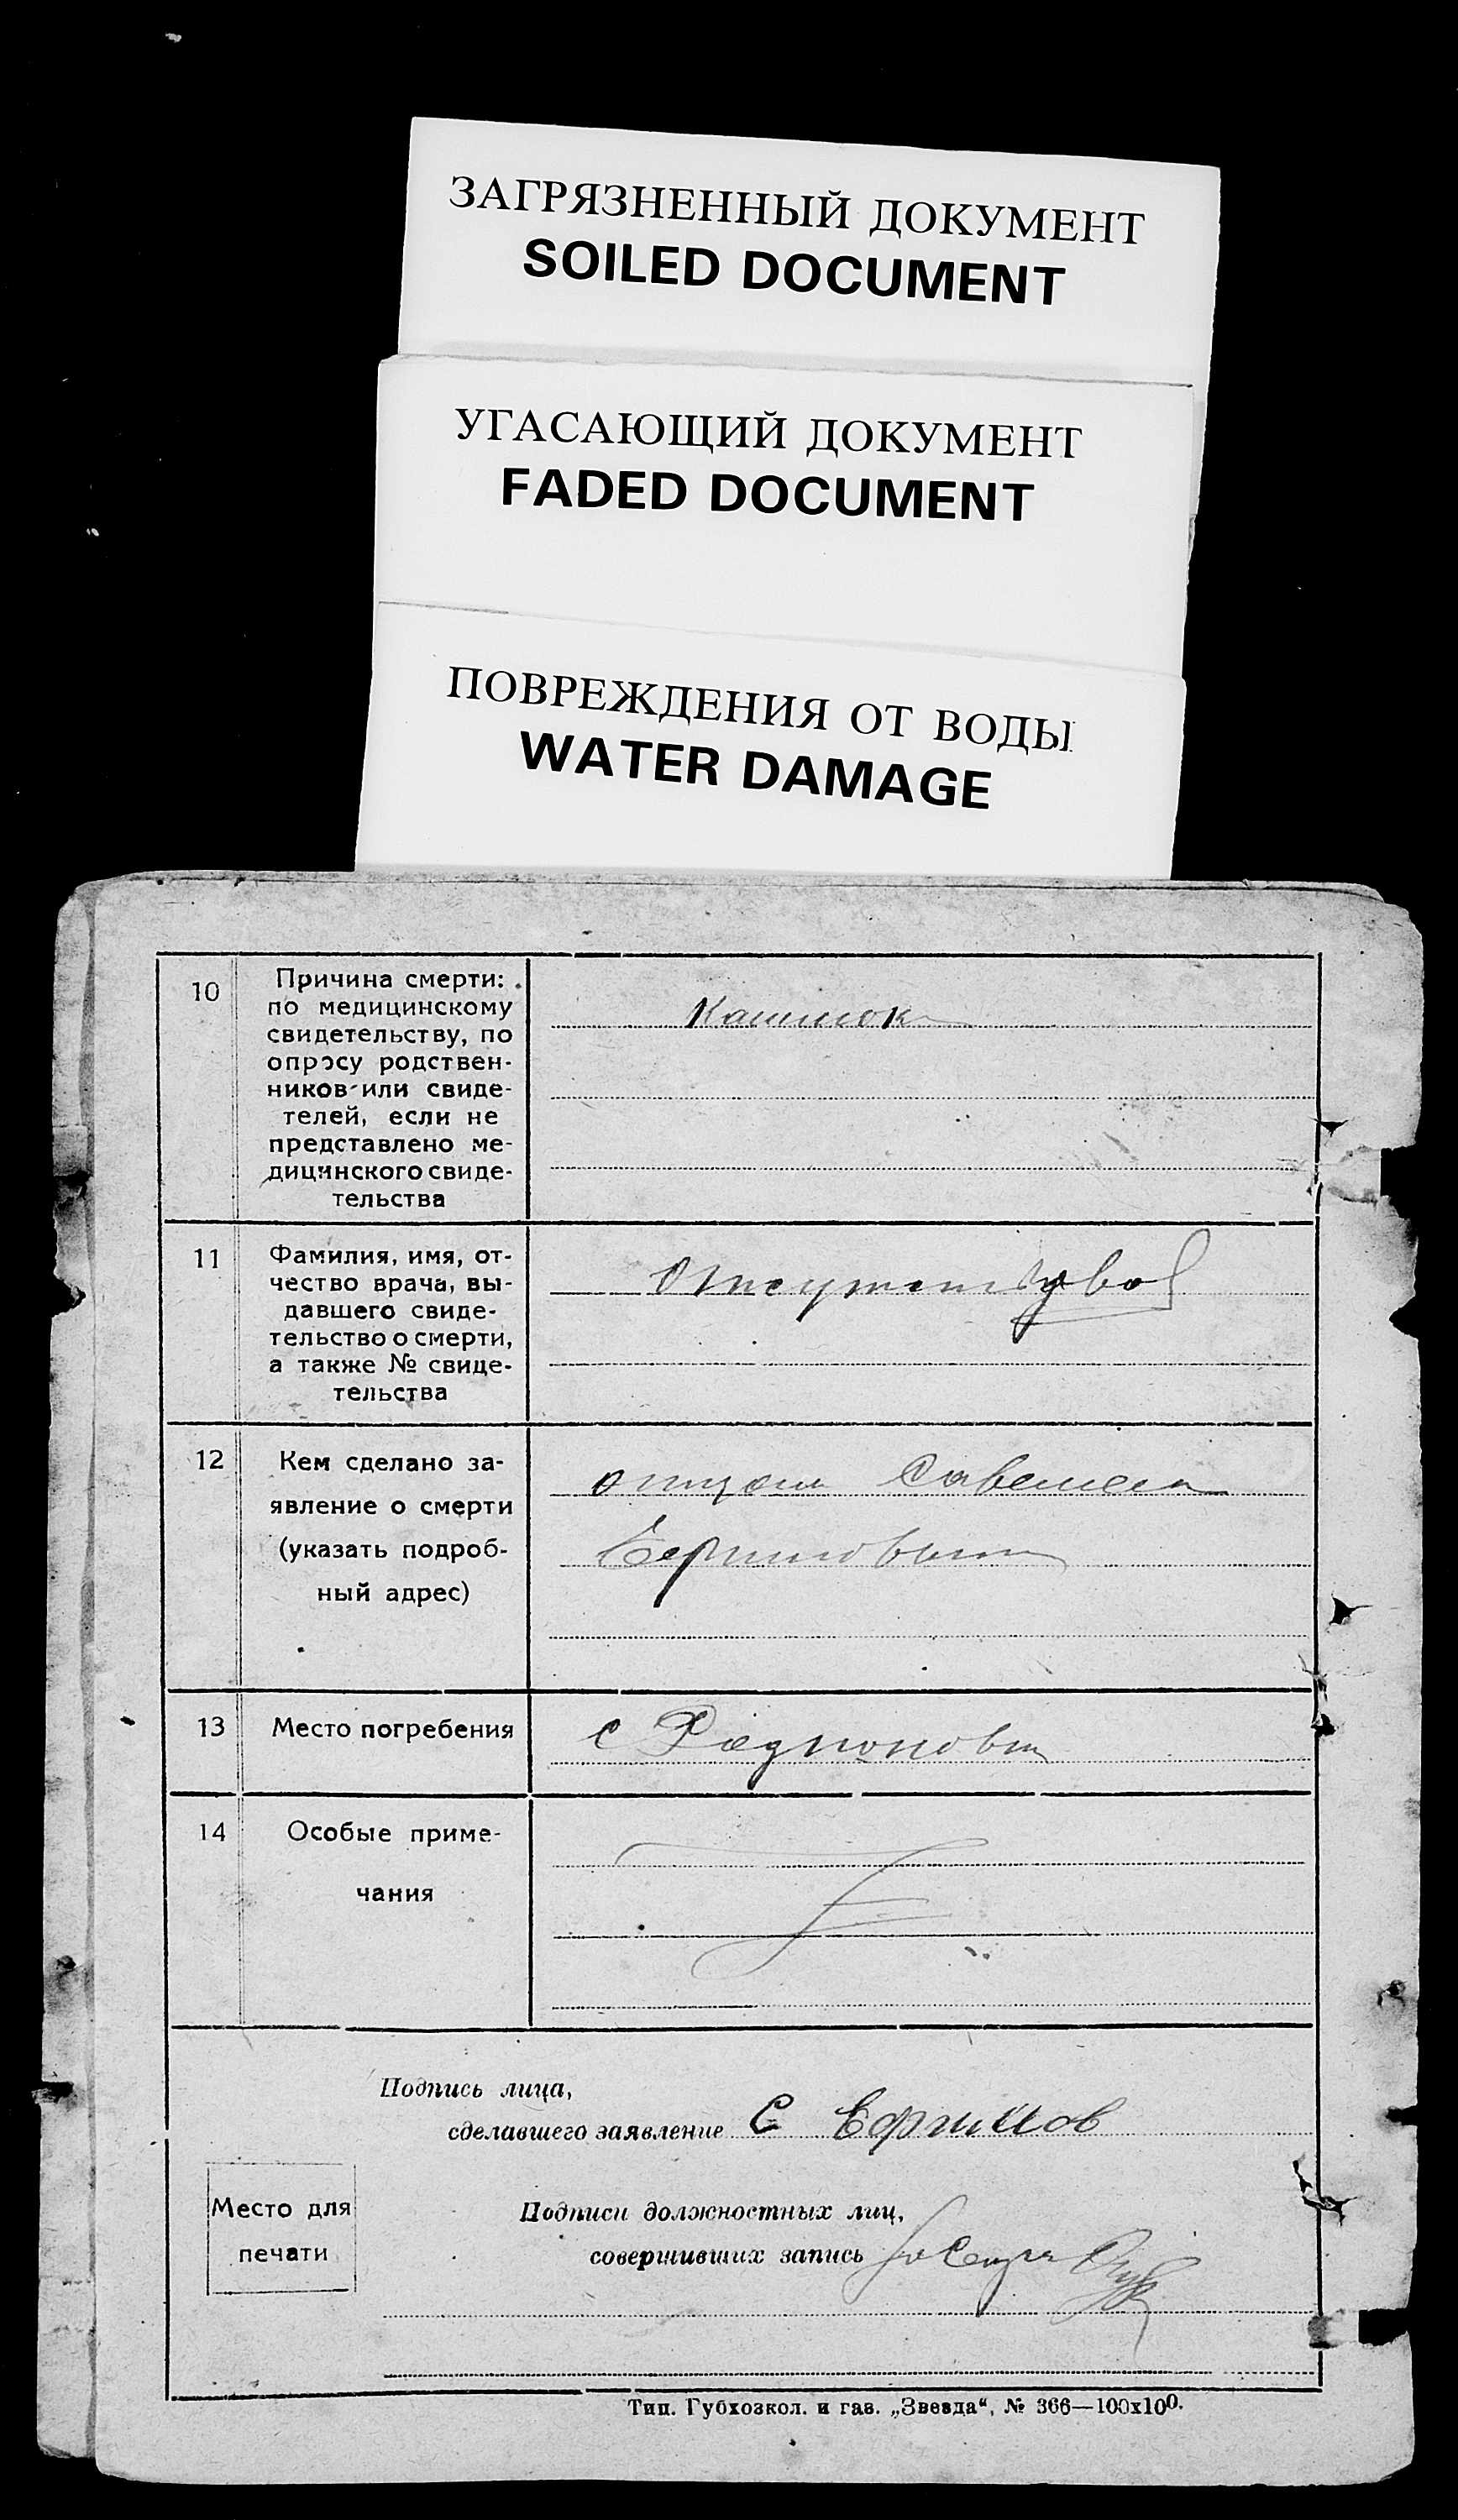 ЗАГРЯЗНЕННЫЙ ДОКУМЕНТ
SOILED DOCUMENT
УГАСАЮЩИЙ ДОКУМЕНТ
FADED DOCUMENT
ПОВРЕЖДЕНИЯ ОТ ВОДЫ
WATER DAMAGE
10
Причина смерти:
по медицинскому
свидетельству, по
опросу родствен-
ников или свиде-
телей, если не
представлено ме-
дицинского свиде-
тельства
11
Фамилия, имя, от-
чество врача, вы-
давшего свиде-
тельство о смерти,
а также № свиде-
тельства
12
Кем сделано за-
явление о смерти
(указать подроб-
ный адрес)
отцом Савелием
13
Место погребения
с
14
Особые приме-
чания
Подпись лица,
сделавшего заявление С
Место для
печати
Подписи должностных лиц,
совершивших запись
Тип. Губхозкол. и газ. „Звезда“, № 366—100х100.